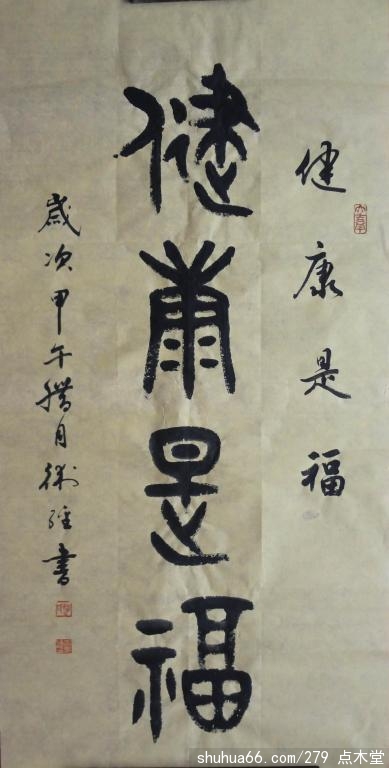 健康是福
健康是福
歲次甲午臘月書
shuhua66.com/279 点木堂